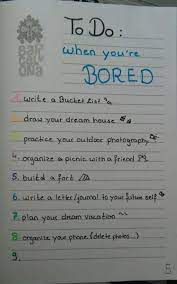 BARCELONA
To Do:
when you're
BORED
1. write a Bucket List
2. draw your dream house
3. practice your outdoor photography
4. organize a picnic with a friend
5. build a fort
6. write a letter/journal to your future self
7. plan your dream vacation
8. organize your phone (delete photos...)
9.
5